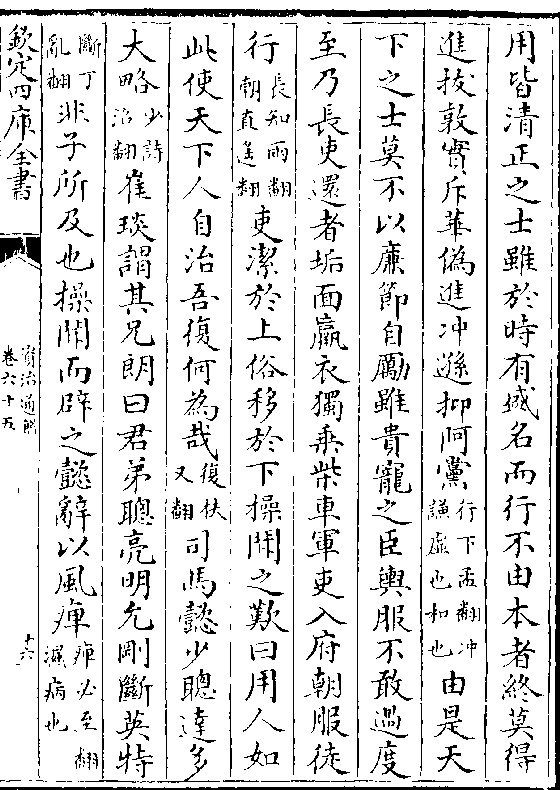 用皆清正之士雖於時有盛名而行不由本者終莫得
進拔敦實斥華偽進冲遜抑阿黨行下孟翻冲謙虛也和也由是天
下之士莫不以廉節自勵雖貴寵之臣輿服不敢過度
至乃長吏還者垢面羸衣獨乘柴車軍吏入府朝服徒
行長知兩翻朝直遥翻吏潔於上俗移於下操聞之歎曰用人如
此使天下人自治吾復何為哉復扶又翻司馬懿少聰達多
大略少詩沼翻崔琰謂其兄朗曰君弟聰亮明允剛斷英特
斷丁亂翻非子所及也操聞而辟之懿辭以風痺痺必至翻濕病也
欽定四庫全書
資治通鑑
卷六十五
十六